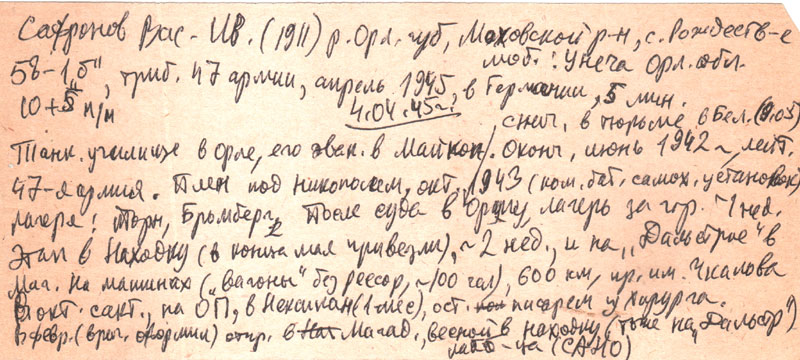 Сафронов Вас. Ив. (1911) р. Орл. губ, Моховской р-н, с. Рождеств-е
моб.: Унеча Орл. обл.
58-1 "б", триб. 47 армии, апрель 1945, в Германии, 5 мин.
10+5 п/п 4.04.45 г.! в тюрьме в Бел. (9.05)
Танк. училище в Орле, его эвак. в Майкоп. Оконч. июнь 1942 г, лейт.
47-я армия. Плен под Никополем, окт. 1943 (ком. бат. самох. установок)
лагеря: Торн, Бромберг. После суда в лагерь за гор. ~1 нед.
Этап в Находку (в конца мая привезли), ~2 нед., и на "Дальстрое" в
Маг. На машинах ("вагоны" без рессор, ~100 чел), 600 км, пр. им. Чкалова
В окт. сакт., на ОП, в Нексикан (1 мес), ост. писарем у хирурга.
В февр. (врач. оформил) отпр. в Магад., весной в Находку (тоже на "Дальстр")
(САНО)